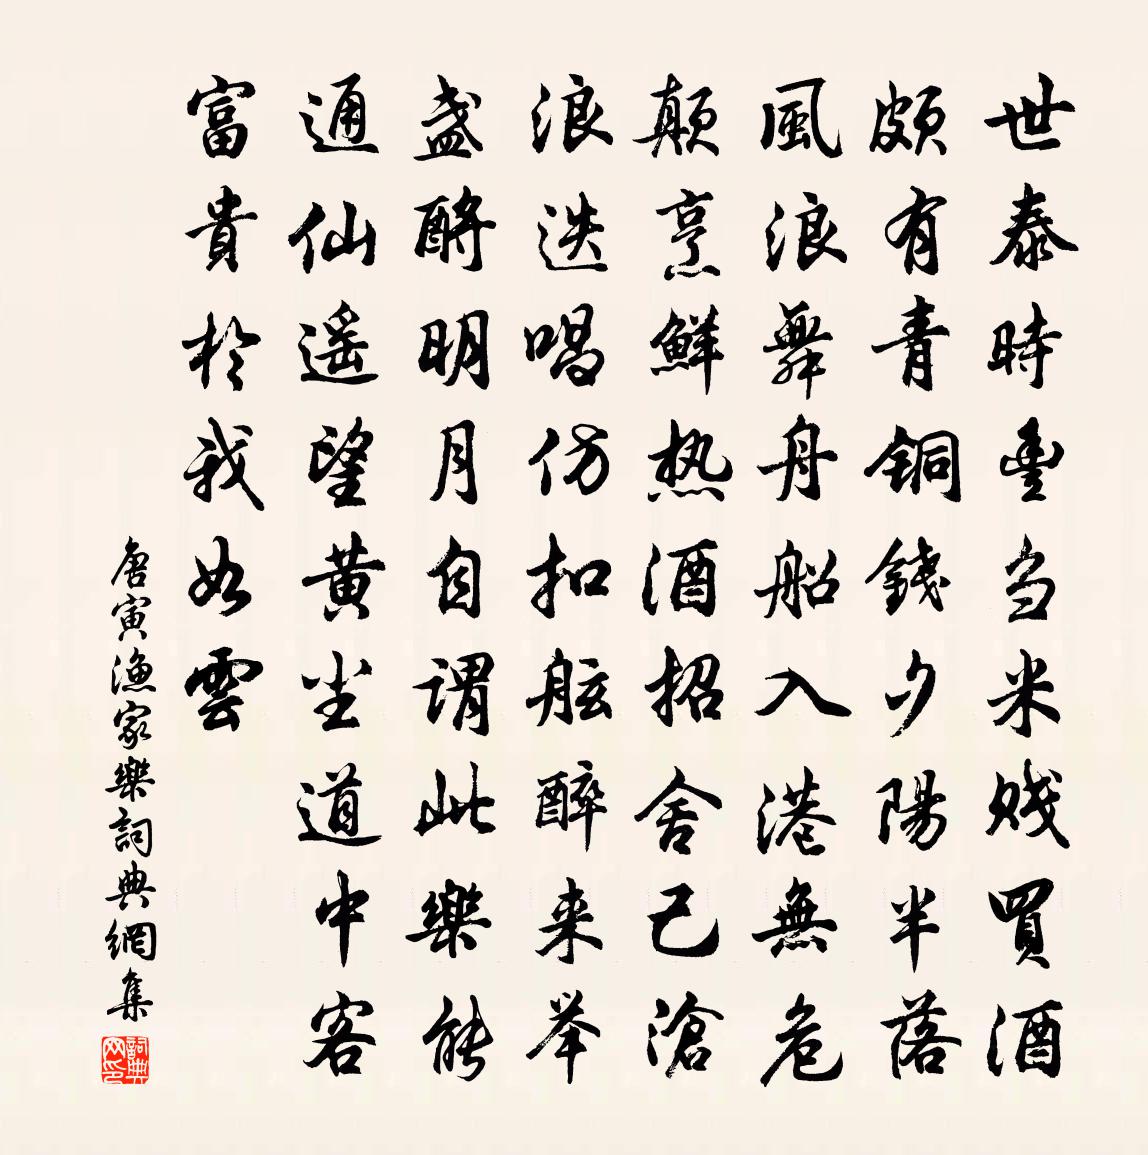 世泰時豐刍米賤買酒
頗有青銅錢夕陽半落
風浪舞舟船入港無危
顛烹鮮热酒招舍己滄
浪迭唱仿扣舷醉来举
盞酹明月自謂此樂能
通仙遥望黄尘道中客
富貴於我如雲
唐寅漁家樂詞典網集
詞典网印